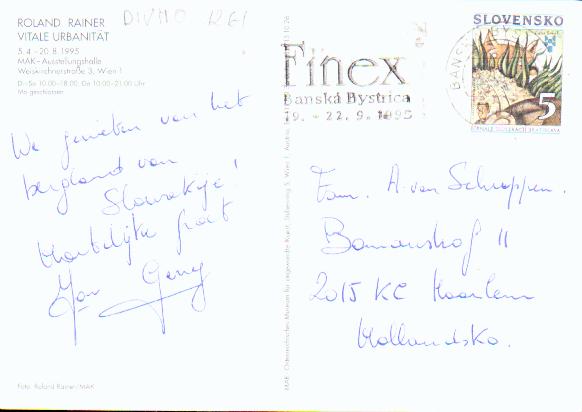 ROLAND RAINER
VITALE URBANITÄT
5.4. - 20.8.1995
MAK-Ausstellungshalle
Weiskirchnerstraße 3, Wien 1
Di-So 10.00-18.00, Do 10.00-21.00 Uhr
Mo geschlossen
We genieten van het
bergland van
Slowakije!
Hartelijke groet
Jan Gerry
Foto: Roland Rainer/MAK
Finex
Banská Bystrica
19. - 22. 9. 1995
SLOVENSKO
5
BIENÁLE ILUSTRÁCIÍ BRATISLAVA
MAK Österreichisches Museum für angewandte Kunst, Stubenring 5, Wien 1, Austria
Fam. A. van Schroppen.
Bomanshof 11
2015 KC Haarlem
Hollandsko.